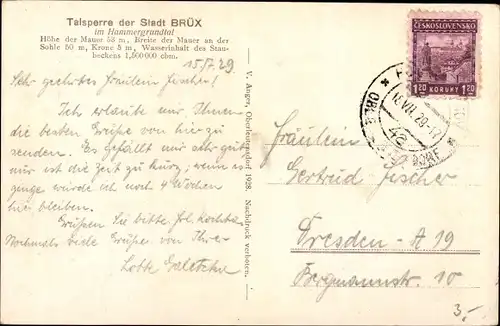 Talsperre der Stadt BRÜX
im Hammergrundtal
Höhe der Mauer 53 m, Breite der Mauer an der
Sohle 50 m, Krone 5 m, Wasserinhalt des Stau-
beckens 1,500000 cbm.
15/7 29
Sehr geehrtes Fräulein Fischer!
Ich erlaube mir Ihnen
die besten Grüße von hier zu
senden. Es gefällt mir sehr gut
nur ist die Zeit zu kurz, wenn es
ginge würde ich noch 4 Wochen
hier bleiben.
Grüßen Sie bitte Frl.
Nochmals viele Grüße von Ihrer
Lotte
V. Anger, Oberleutensdorf 1928. Nachdruck verboten.
ČESKOSLOVENSKO
1.20 KORUNY 1.20
Fräulein
Gertrud Fischer
Dresden-A 19
Bergmannstr. 10
3.-